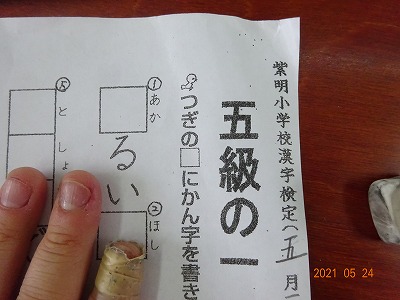 紫明小学校漢字検定（五月
五級の一
つぎの□にかん字を書き
①あか
るい
②ほし
⑤としょ
2021 05 24